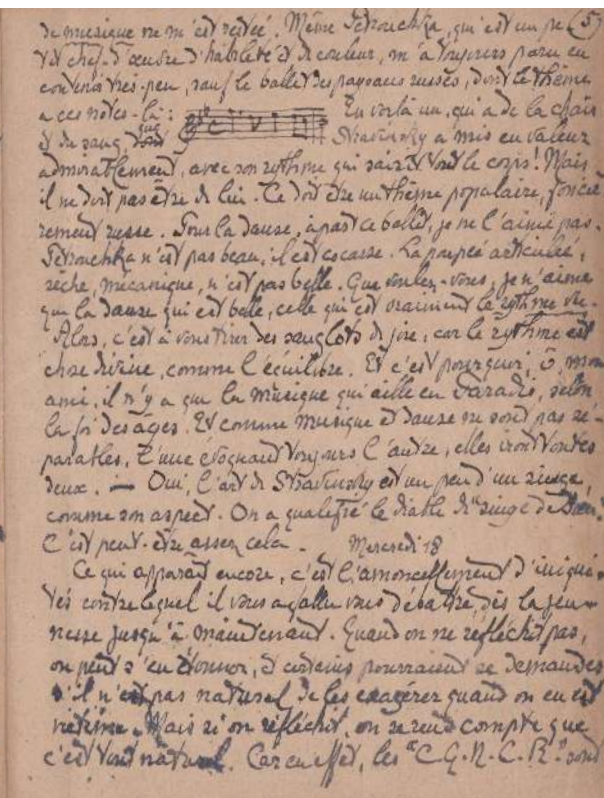 de musique ne m'est restée. Même Petrouchka, qui est un pe- (5)
tit chef-d'œuvre d'habileté et de couleur, m'a toujours paru en
contenir très-peu, sauf le ballet des paysans russes, dont le thème
a ces notes-là : En voilà un, qui a de la chair
et du sang, que Stravinsky a mis en valeur
admirablement, avec son rythme qui saisit tout le corps ! Mais
il ne doit pas être de lui. Ce doit être un thème populaire, fonciè-
rement russe. Pour la danse, à part ce ballet, je ne l'aime pas.
Petrouchka n'est pas beau, il est cocasse. La poupée articulée,
sèche, mécanique, n'est pas belle. Que voulez-vous, je n'aime
que la danse qui est belle, celle qui est vraiment le rythme vie.
Alors, c'est à vous tirer des sanglots de joie, car le rythme est
chose divine, comme l'équilibre. Et c'est pourquoi, ô, mon
ami, il n'y a que la musique qui aille en Paradis, selon
la foi des âges. Et comme musique et danse ne sont pas sé-
parables, l'une évoquant toujours l'autre, elles iront toutes
deux. — Oui, l'art de Stravinsky est un peu d'un singe,
comme son aspect. On a qualifié le diable de "singe de Dieu".
C'est peut-être assez cela. Mercredi 18
Ce qui apparaît encore, c'est l'amoncellement d'iniqui-
tés contre lequel il vous a fallu vous débattre, dès la jeu-
nesse jusqu'à maintenant. Quand on ne réfléchit pas,
on peut s'en étonner, et certains pourraient se demander
s'il n'est pas naturel de les exagérer quand on en est
victime. Mais si on réfléchit, on se rend compte que
c'est tout naturel. Car en effet, les "C.G.N.C.R." sont